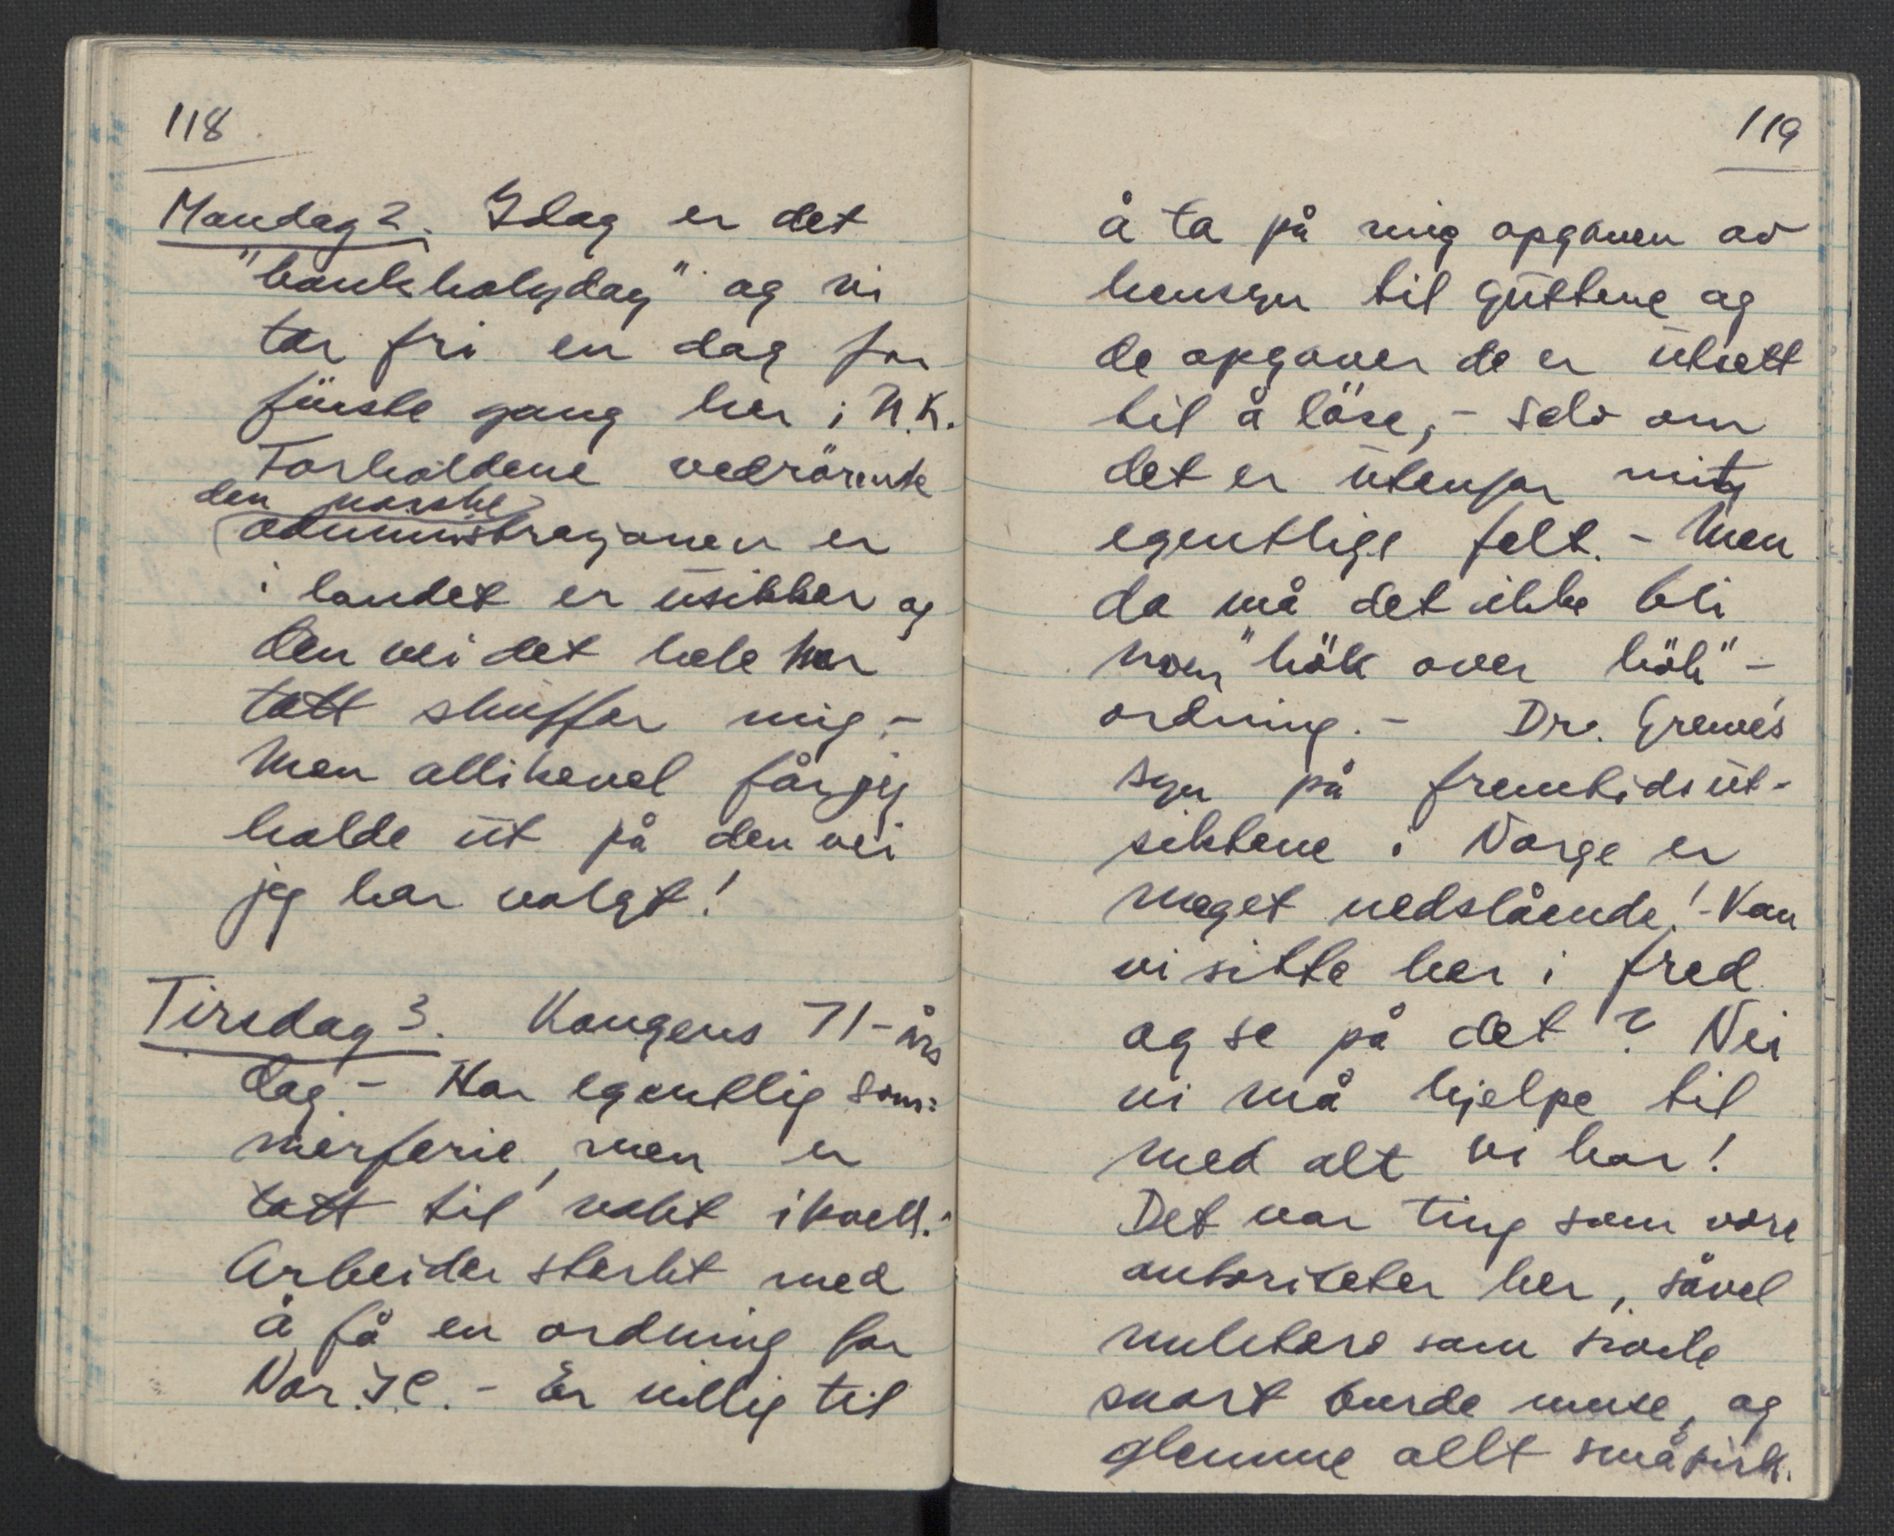 118
Mandag 2. Idag er det
"bankholyday" og vi
tar fri en dag for
første gang her i U.K.
Forholdene vedrörende
den norske
administrasjonen er
i landet er usikker og
den vei det hele har
tatt skuffer mig. -
Men allikevel får jeg
holde ut på den vei
jeg har valgt!
Tirsdag 3. Kongens 71-års
dag. - Har egentlig som=
merferie, men er
tatt til vakt ikveld. -
Arbeider sterkt med
å få en ordning for
Nor.I.C. - Er villig til
119
å ta på mig opgaven av
hensyn til guttene og
de opgaver de er utsett
til å löse, - selv om
det er utenfor mitt
egentlige felt. - Men
da må det ikke bli
noen "hök over hök" -
ordning. - Dr. Grewe's
syn på fremtidsut-
siktene i Norge er
meget nedslående! - Kan
vi sitte her i fred
og se på det? Nei
vi må hjelpe til
med alt vi har!
Det var ting som våre
autoriteter her, såvel
militære som sivile
snart burde innse, og
glemme allt småpirk.